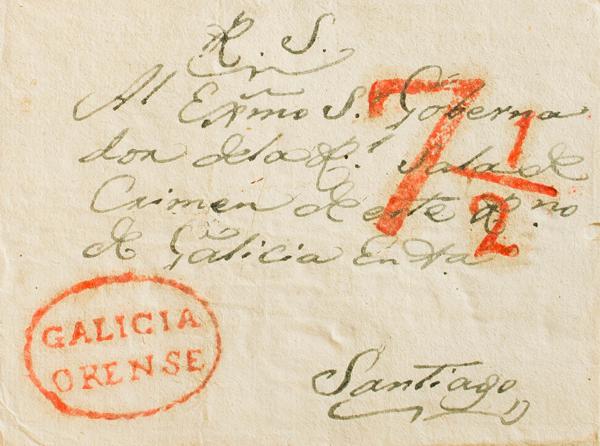 R. S.
Al Exmo S.r Goberna
dor dela R.l Sala de
Crimen de este R.no
de Galicia En
7 1/2
GALICIA
ORENSE
Santiago